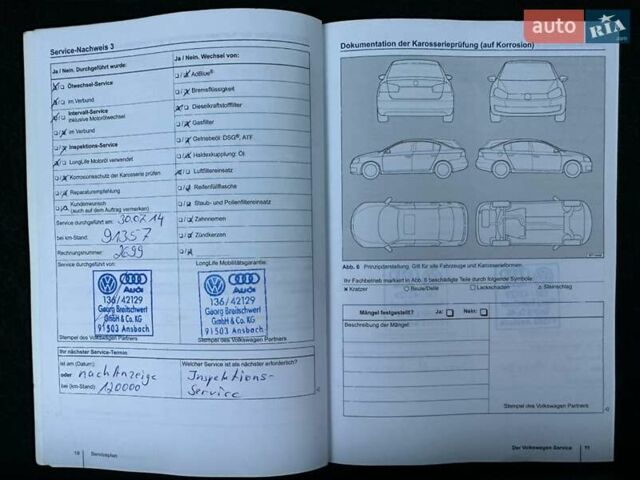 Service-Nachweis 3
Ja / Nein. Durchgeführt wurde:
Ja / Nein. Wechsel von:
Ölwechsel-Service
AdBlue®
im Verbund
Bremsflüssigkeit
Intervall-Service
inklusive Motorölwechsel
Dieselkraftstofffilter
im Verbund
Gasfilter
Inspektions-Service
Getriebeöl: DSG®, ATF
LongLife Motoröl verwendet
Haldexkupplung: Öl
Korrosionsschutz der Karosserie prüfen
Luftfiltereinsatz
Reparaturempfehlung
Reifenfüllflasche
Kundenwunsch
(auch auf dem Auftrag vermerken)
Staub- und Pollenfiltereinsatz
Service durchgeführt am: 30.07.14
Zahnriemen
bei km-Stand: 91357
Zündkerzen
Rechnungsnummer: 2699
Service durchgeführt von:
LongLife Mobilitätsgarantie:
Audi
136/42129
Georg Breitschwert
GmbH & Co. KG
91503 Ansbach
Audi
136/42129
Georg Breitschwert
GmbH & Co. KG
91503 Ansbach
Stempel des Volkswagen Partners
Stempel des Volkswagen Partners
Ihr nächster Service-Termin
ist am (Datum):
Welcher Service ist als nächster erforderlich?
oder nach Anzeige
Inspektions-
bei (km-Stand): 120000
Service
10 Serviceplan
auto RIA.com
Dokumentation der Karosserieprüfung (auf Korrosion)
Abb. 6 Prinzipdarstellung. Gilt für alle Fahrzeuge und Karosserieformen.
Ihr Fachbetrieb markiert in Abb. 6 beschädigte Teile durch folgende Symbole:
× Kratzer ○ Beule/Delle □ Lackschaden △ Steinschlag
Mängel festgestellt? Ja: Nein:
Beschreibung der Mängel:
Stempel des Volkswagen Partners
Der Volkswagen Service 11